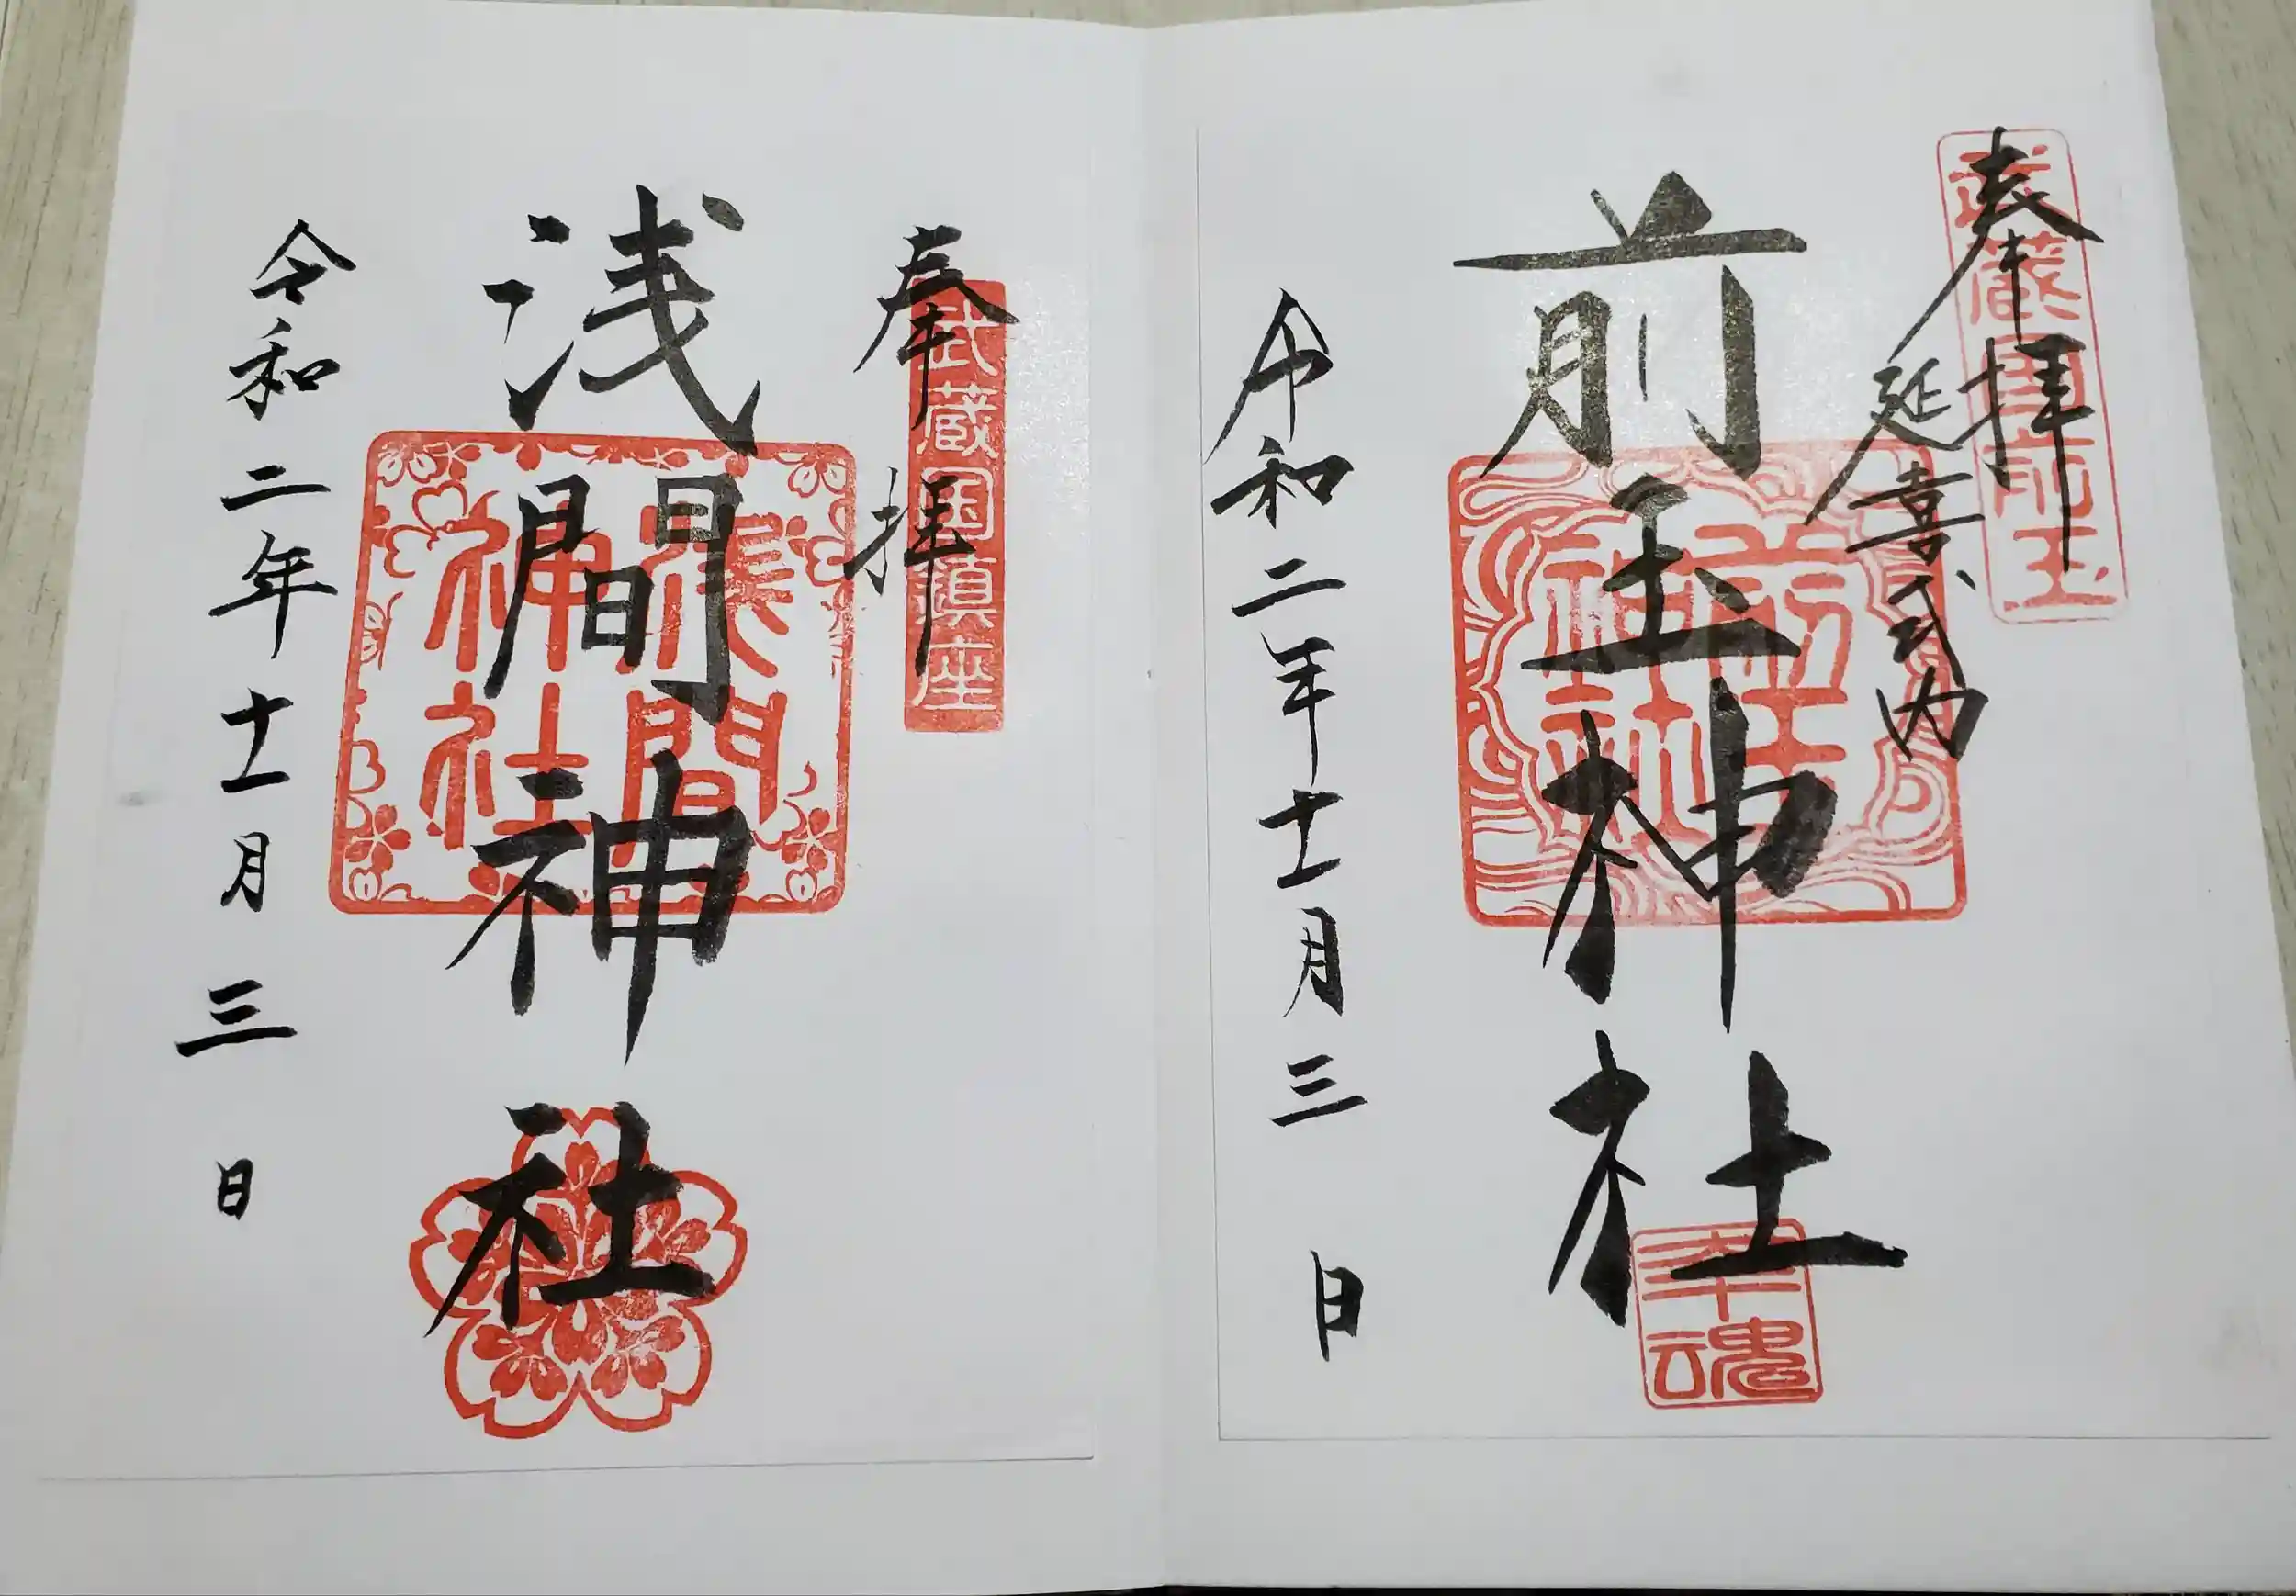 奉拝
延喜式内
武蔵国前玉
前玉神社
前玉神社
幸魂
令和二年十一月三日
奉拝
武蔵国鎮座
浅間神社
浅間神社
令和二年十一月三日